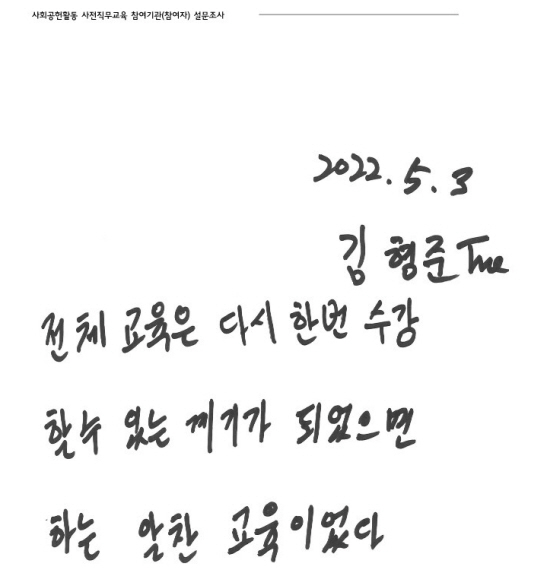 사회공헌활동 사전직무교육 참여기관(참여자) 설문조사
2022. 5. 3
김형준
전체 교육은 다시 한번 수강
할수 있는 께기가 되었으면
하는 알찬 교육이었다